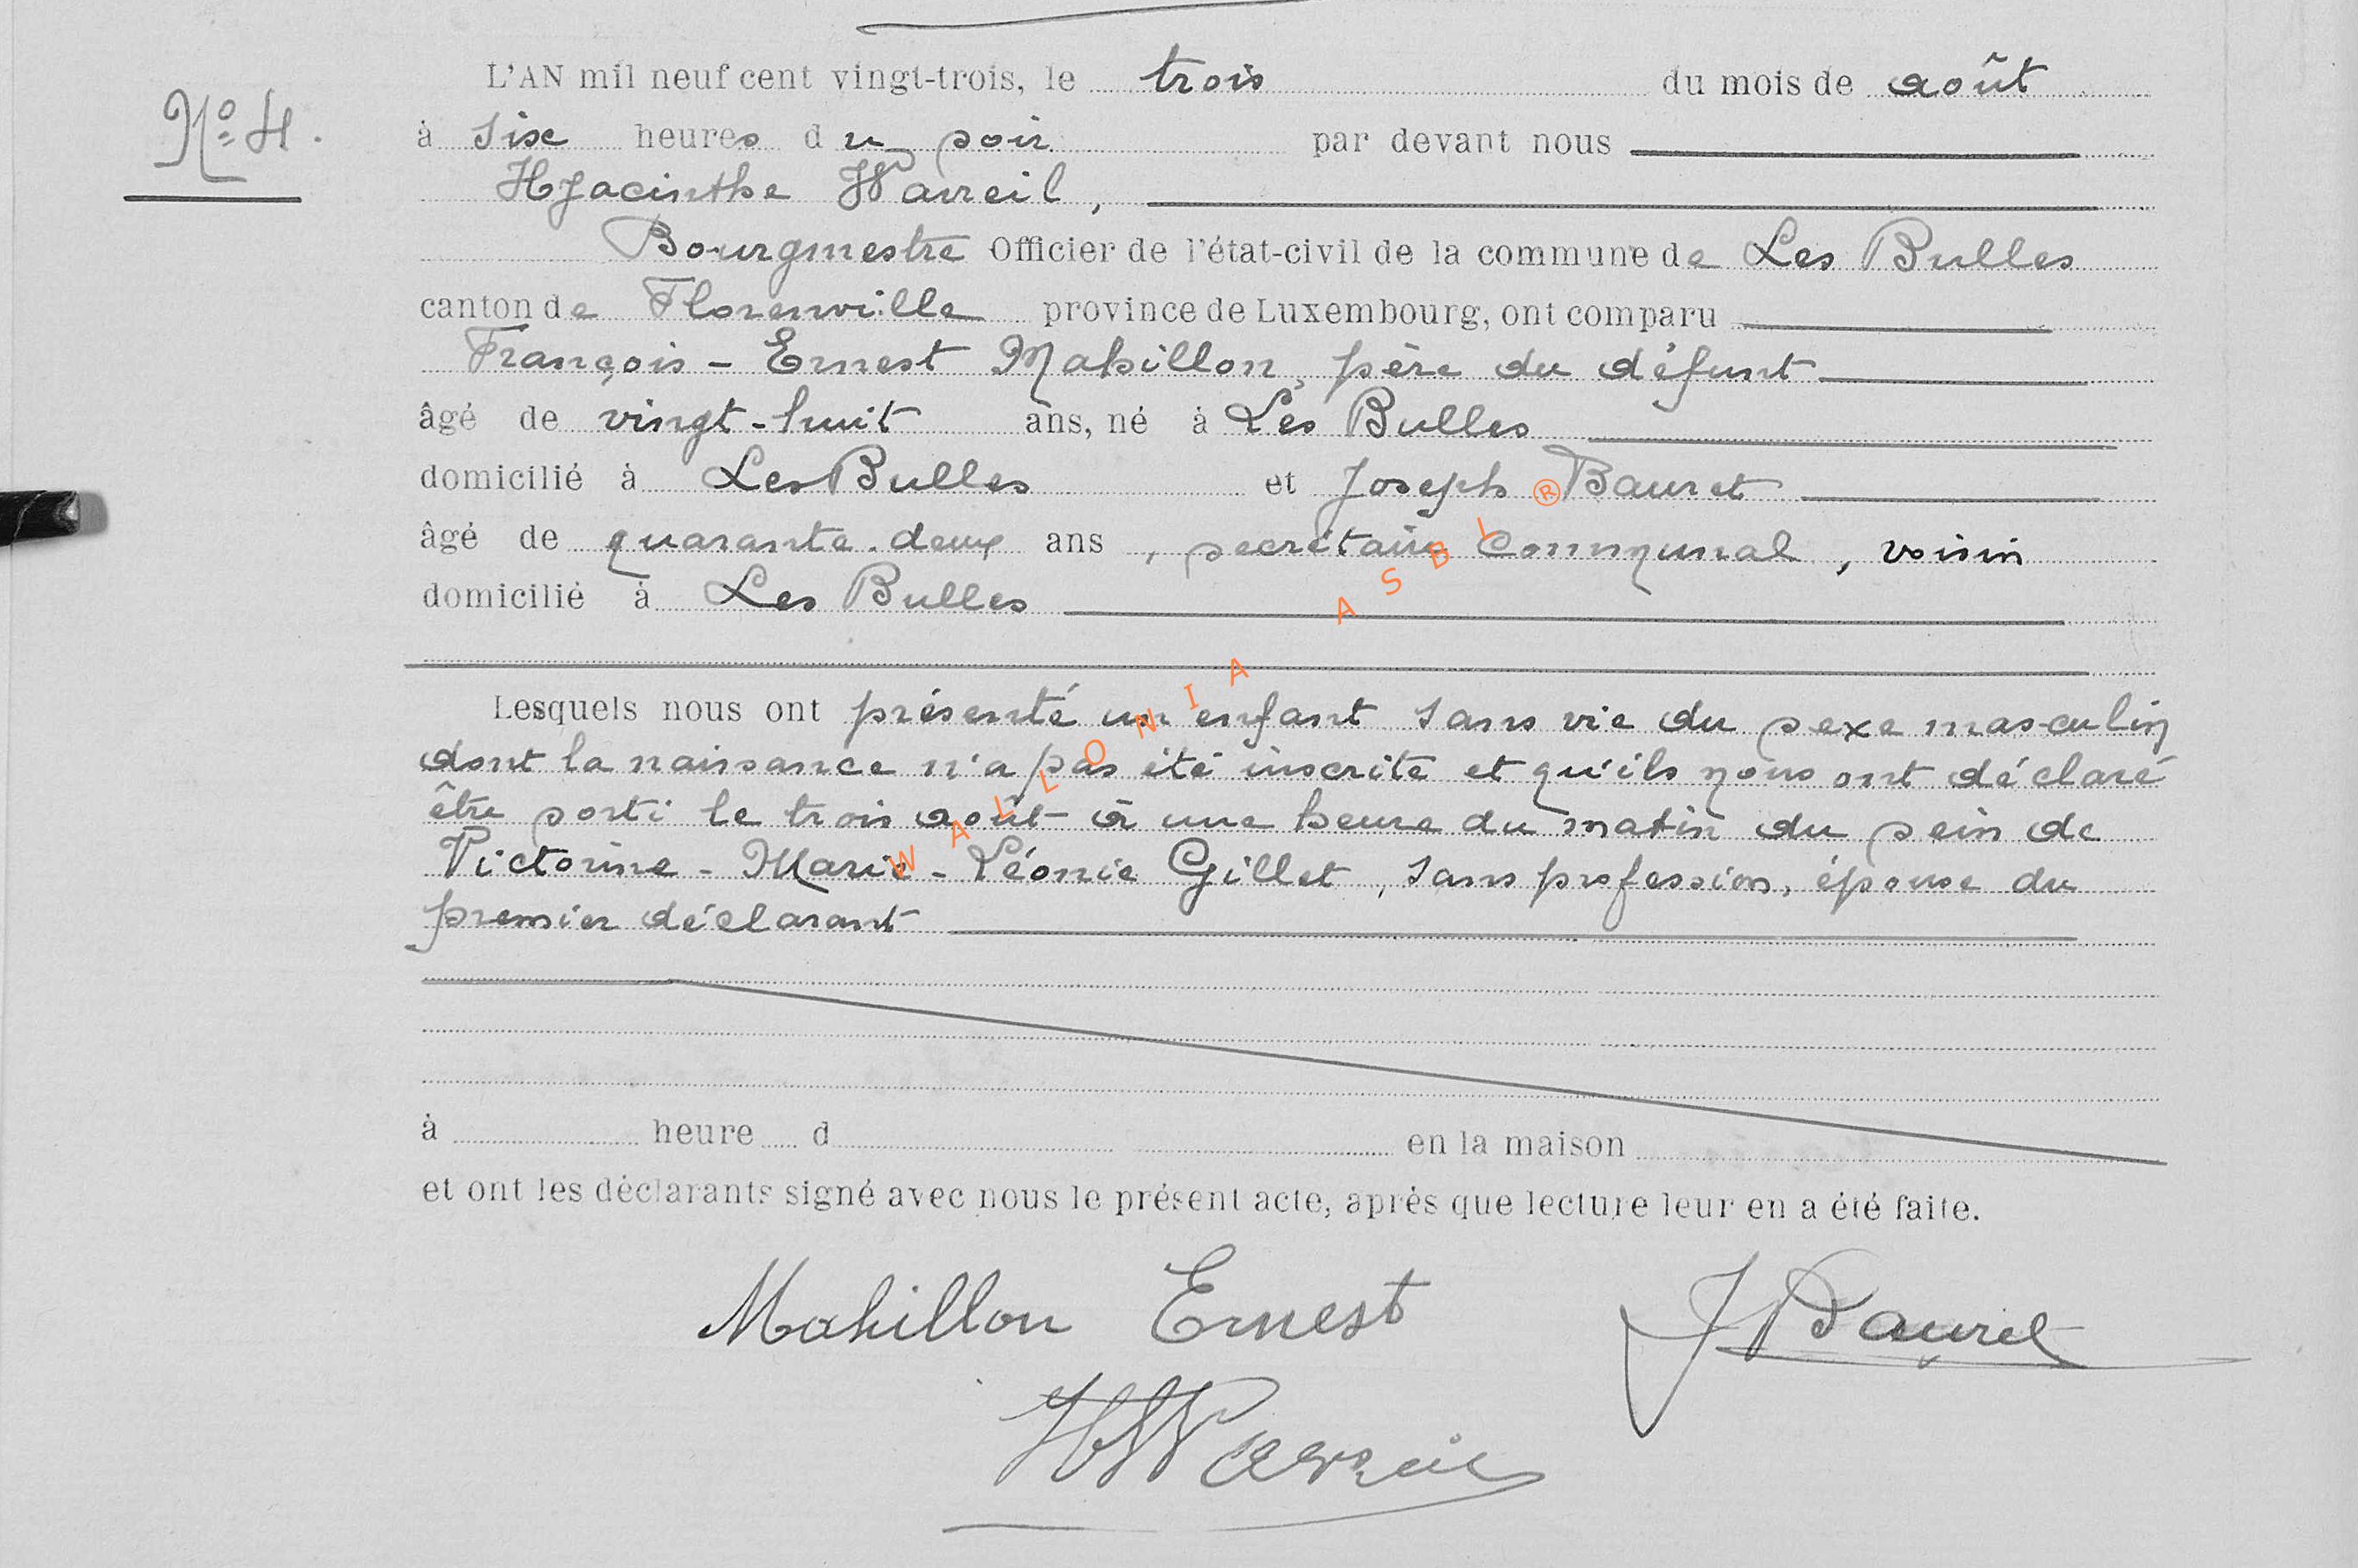 L'AN mil neuf cent vingt-trois, le trois du mois de août
N° 4.
à six heures du soir par devant nous
Hyacinthe Wavreil,
Bourgmestre Officier de l'état-civil de la commune de Les Bulles
canton de Florenville province de Luxembourg, ont comparu
François-Ernest Mahillon, père du défunt
âgé de vingt-huit ans, né à Les Bulles
domicilié à Les Bulles et Joseph Bauret
âgé de quarante-deux ans, secrétaire Communal, voisin
domicilié à Les Bulles
Lesquels nous ont présenté un enfant sans vie du sexe masculin
dont la naissance n'a pas été inscrite et qu'ils nous ont déclaré
être sorti le trois août à une heure du matin du sein de
Victorine-Marie-Léonie Gillet, sans profession, épouse du
premier déclarant
à heure d en la maison
et ont les déclarants signé avec nous le présent acte, après que lecture leur en a été faite.
Mahillon Ernest J Bauret
H Wavreil
WALLONIA ASBL ®